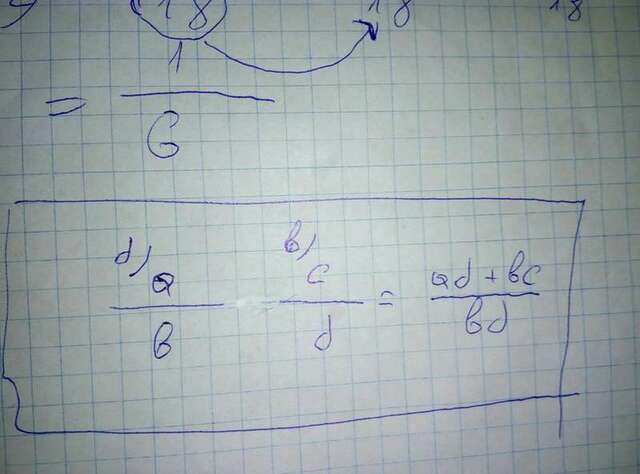 18 18 18
= 1/6
d) b)
a/b c/d = ad + bc/bd